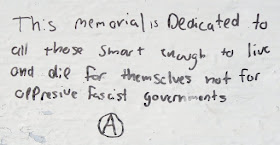 This memorial is Dedicated to
all those smart enough to live
and die for themselves not for
oppresive fascist governments
A